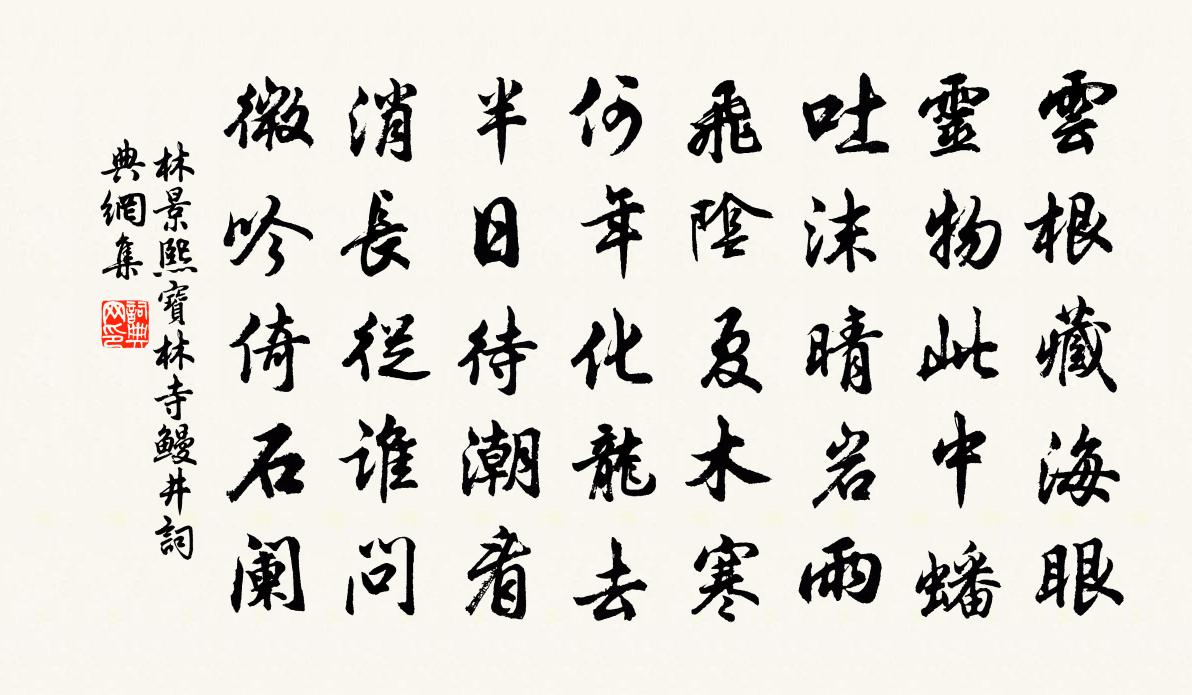 雲根藏海眼
靈物此中蟠
吐沫晴岩雨
飛陰夏木寒
何年化龍去
半日待潮看
消長從誰問
微吟倚石阑
林景熙寶林寺鰻井詞
典網集
詞典
网印